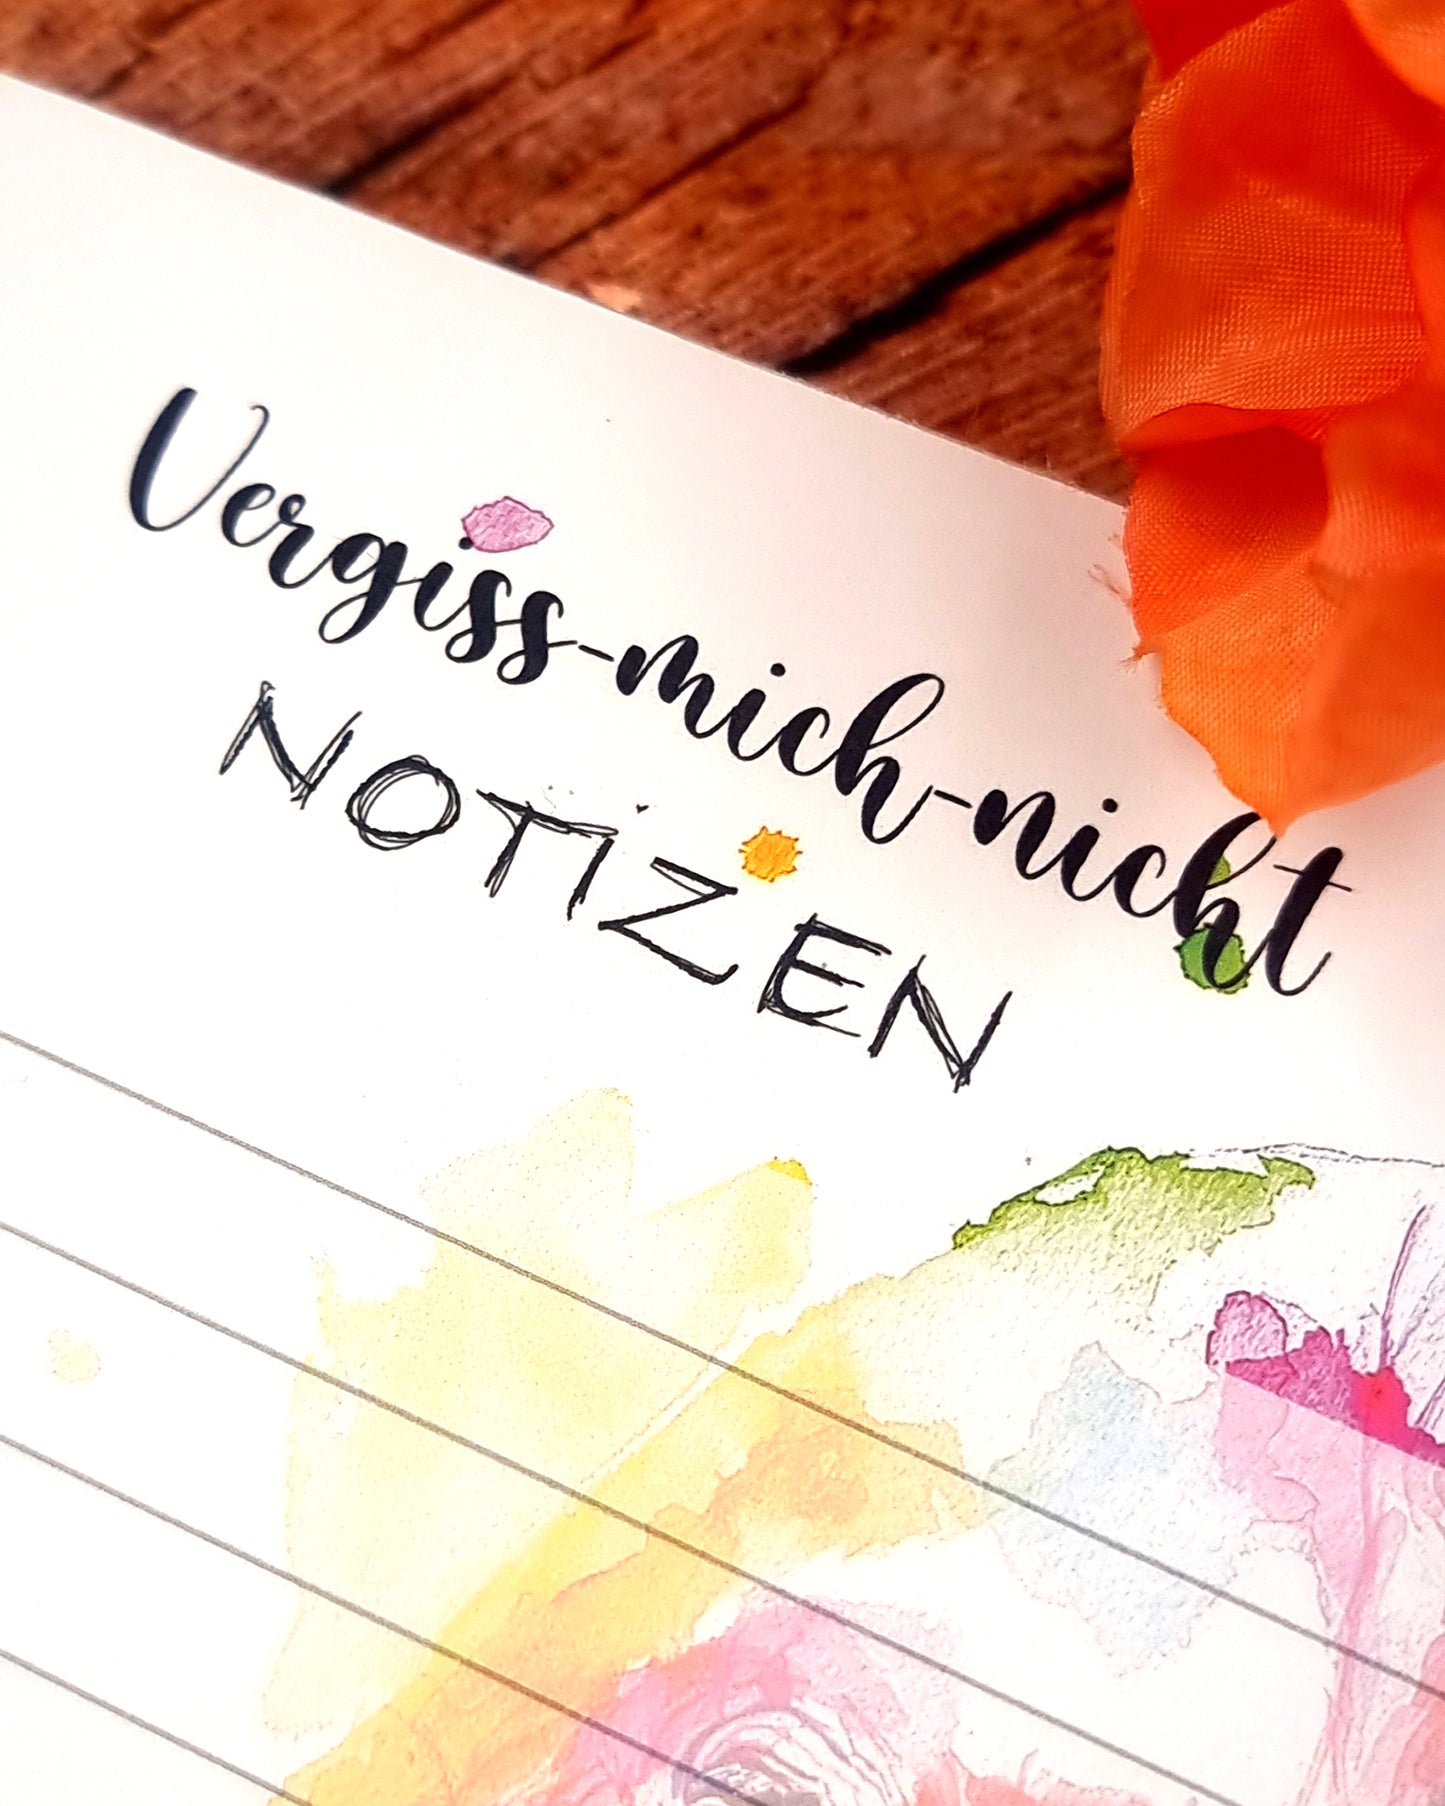 Vergiss-mich-nicht
NOTiZEN